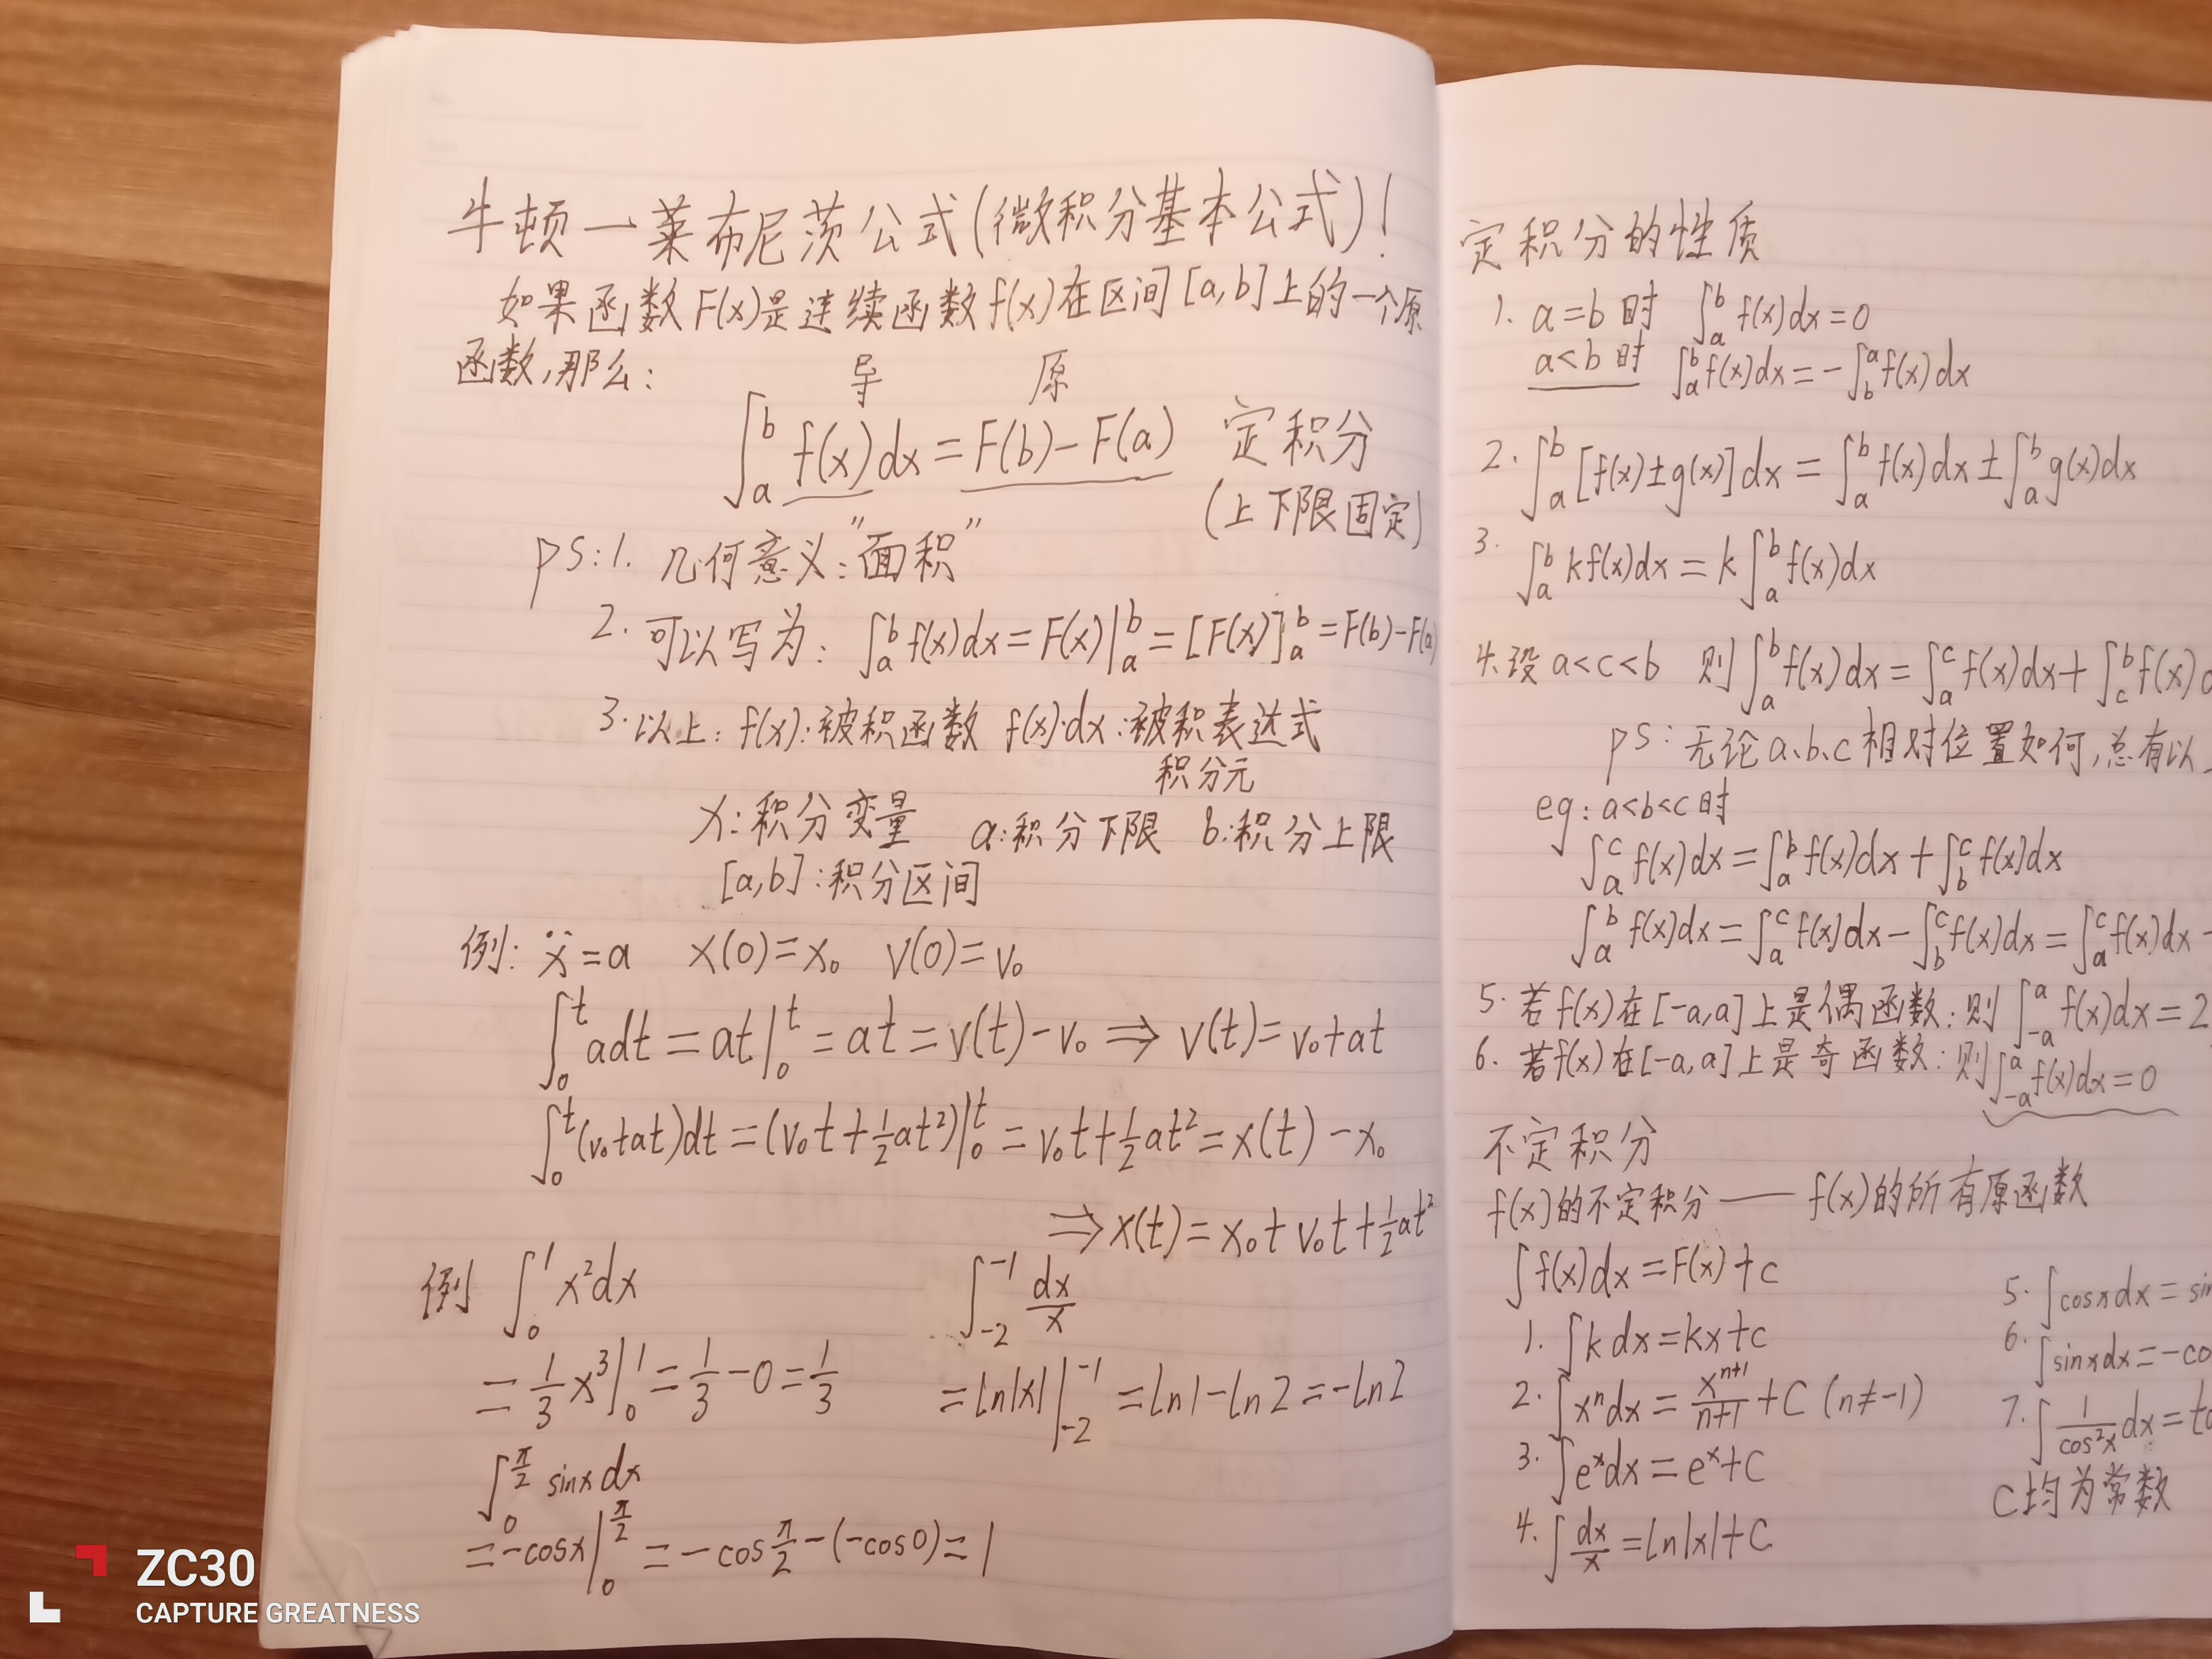 牛顿一莱布尼茨公式(微积分基本公式)!
如果函数F(x)是连续函数f(x)在区间[a,b]上的一个原
函数,那么:
导 原
∫_a^b f(x)dx=F(b)-F(a) 定积分
(上下限固定)
ps:1. 几何意义:"面积"
2. 可以写为: ∫_a^b f(x)dx=F(x)|_a^b=[F(x)]_a^b=F(b)-F(a)
3.以上: f(x):被积函数 f(x)·dx:被积表达式
积分元
x:积分变量 a:积分下限 b:积分上限
[a,b]:积分区间
例: ẍ=a x(0)=x₀ v(0)=v₀
∫_0^t adt=at|_0^t=at=v(t)-v₀⇒v(t)=v₀+at
∫_0^t(v₀+at)dt=(v₀t+½at²)|_0^t=v₀t+½at²=x(t)-x₀
⇒x(t)=x₀+v₀t+½at²
例 ∫_0^1 x²dx ∫_{-2}^{-1} dx/x
=1/3 x³|_0^1=1/3-0=1/3 =ln|x||_{-2}^{-1}=ln1-ln2=-ln2
∫_0^{π/2} sinxdx
=-cosx|_0^{π/2}=-cosπ/2-(-cos0)=1
定积分的性质
1. a=b时 ∫_a^b f(x)dx=0
a<b时 ∫_a^b f(x)dx=-∫_b^a f(x)dx
2. ∫_a^b[f(x)±g(x)]dx=∫_a^b f(x)dx±∫_a^b g(x)dx
3. ∫_a^b kf(x)dx=k∫_a^b f(x)dx
4.设a<c<b 则∫_a^b f(x)dx=∫_a^c f(x)dx+∫_c^b f(x)
ps:无论a、b、c相对位置如何,总有以
eg:a<b<c时
∫_a^c f(x)dx=∫_a^b f(x)dx+∫_b^c f(x)dx
∫_a^b f(x)dx=∫_a^c f(x)dx-∫_b^c f(x)dx=∫_a^c f(x)dx
5. 若f(x)在[-a,a]上是偶函数:则∫_{-a}^a f(x)dx=2
6. 若f(x)在[-a,a]上是奇函数:则∫_{-a}^a f(x)dx=0
不定积分
f(x)的不定积分——f(x)的所有原函数
∫f(x)dx=F(x)+c
1. ∫kdx=kx+c
2. ∫xⁿdx=x^{n+1}/(n+1)+C (n≠-1)
3. ∫eˣdx=eˣ+C
4. ∫dx/x=ln|x|+C
5. ∫cosxdx=sin
6. ∫sinxdx=-co
7. ∫1/cos²x dx=ta
C均为常数
ZC30
CAPTURE GREATNESS